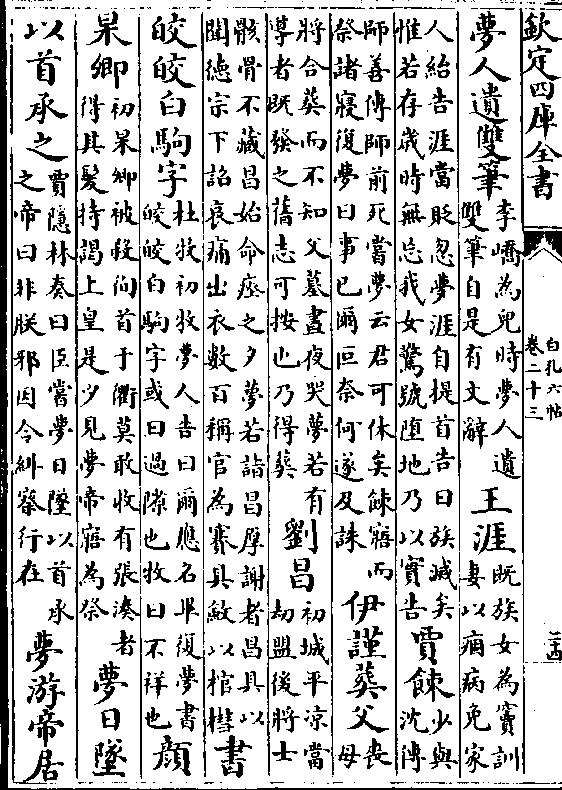 欽定四庫全書
白孔六帖
卷二十三
二十四
夢人遺雙筆
李嶠為兒時夢人遺
雙筆自是有文辭
王涯
既族女為竇訓
妻以痼病免家
人紿告涯當貶忽夢涯自提首告曰族滅矣
惟若存歲時無忘我女驚號墮地乃以實告
賈餗
少與
沈傳
師善傳師前死嘗夢云君可休矣餗寤而
祭諸寢復夢曰事已爾叵奈何遂及誅
伊謹葬父
喪
母
將合葬而不知父墓晝夜哭夢若有
導者既發之舊志可按也乃得葬
劉昌
初城平涼當
劫盟後將士
骸骨不藏昌始命瘞之夕夢若詣昌厚謝者昌具以
聞德宗下詔哀痛出衣數百稱官為賽具斂以棺槥
書
皎皎白駒字
杜牧初牧夢人告曰爾應名畢復夢書
皎皎白駒字或曰過隙也牧曰不祥也
顏
杲卿
初杲卿被殺徇首于衢莫敢收有張湊者
得其髮持謁上皇是夕見夢帝寤為祭
夢日墜
以首承之
賈隱林奏曰臣嘗夢日墜以首承
之帝曰非朕邪因令糾察行在
夢游帝居